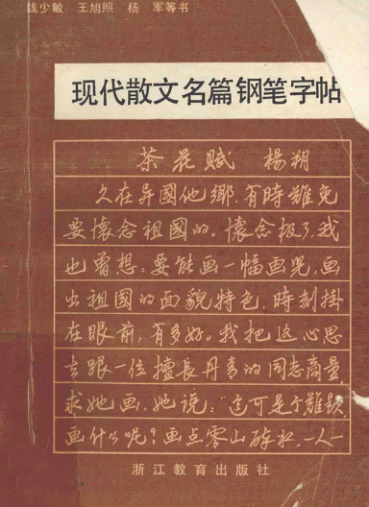 钱少敏 王旭照 杨 军等书
现代散文名篇钢笔字帖
茶花赋 楊朔
久在异國他鄉，有時難免
要懷念祖國的。懷念极了，我
也曾想：要能画一幅画兒，画
出祖國的面貌特色，時刻掛
在眼前，有多好。我把这心思
去跟一位擅長丹青的同志商量，
求她画，她说：“这可是个難题，
画什么呢？画点零山碎水，一人一
浙江教育出版社